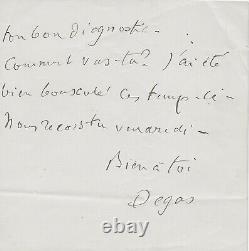 ton bon diagnostic.
Comment vas-tu? J'ai été
bien bousculé ces temps-ci –
Nous recois tu vendredi –
Bien à toi
Degas